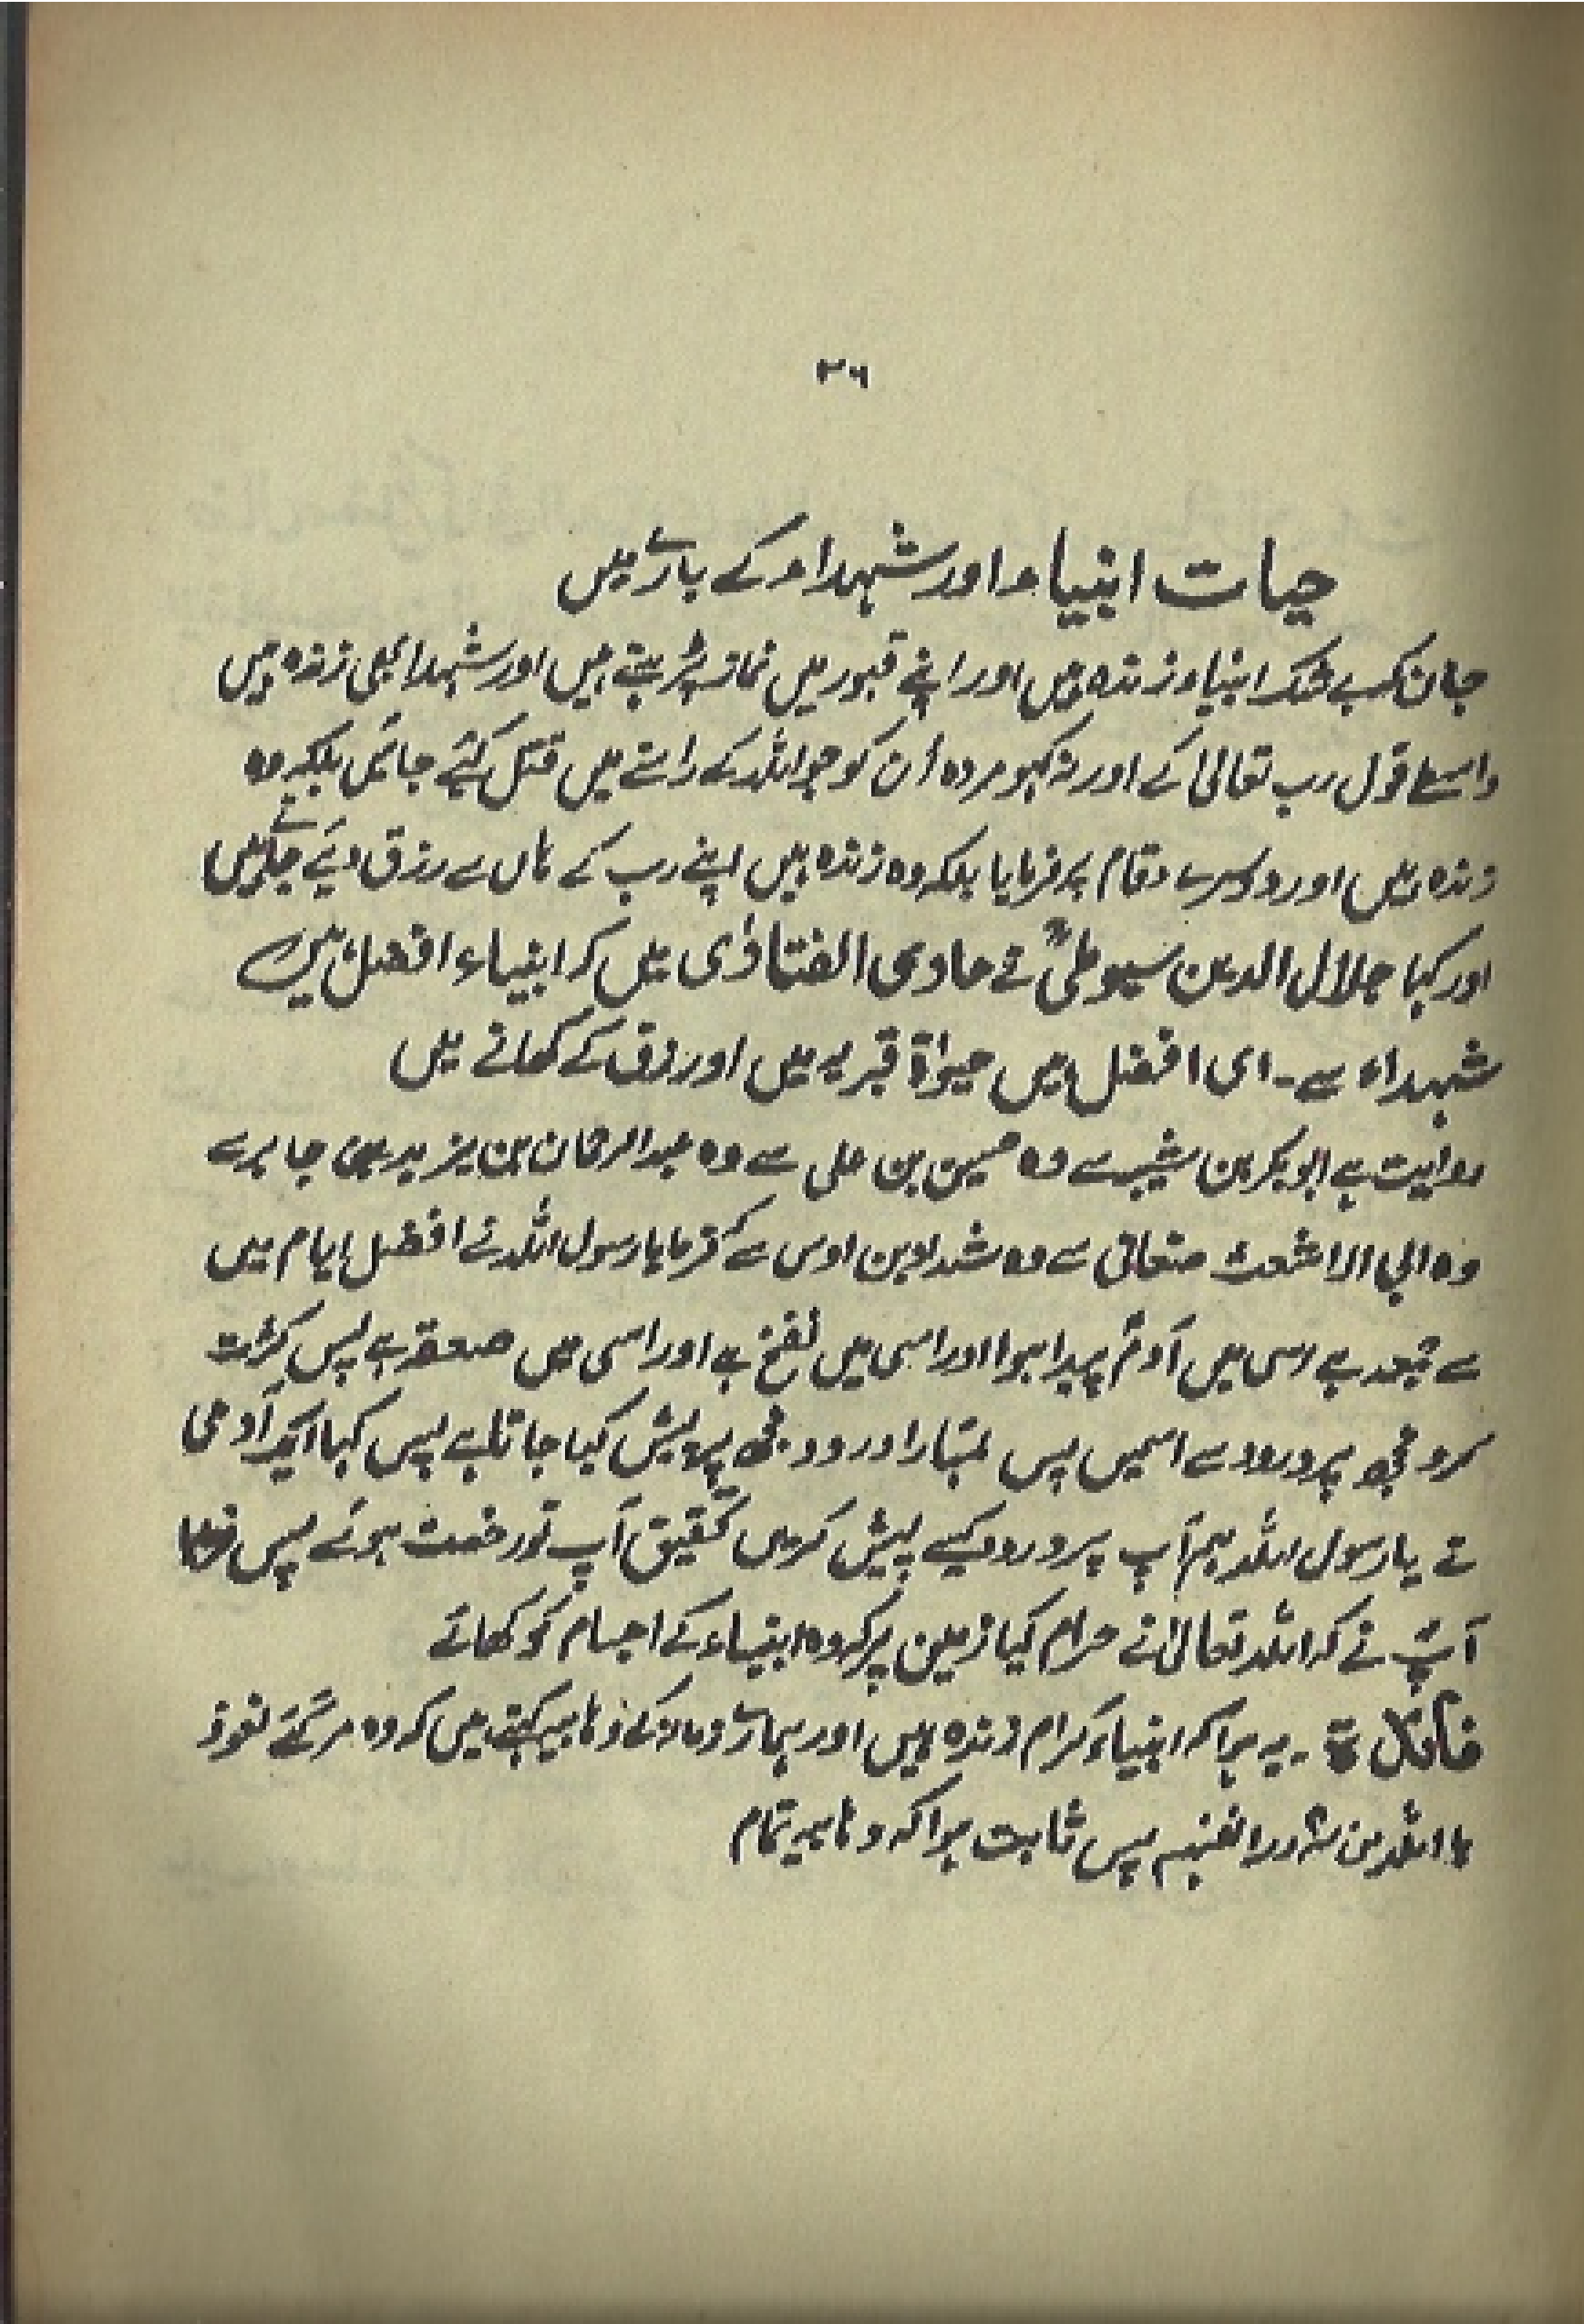 ۲۶
حیات انبیاء اور شہداء کے بارے میں
جان کہ بے شک انبیاء زندہ ہیں اور اپنے قبور میں نماز پڑہتے ہیں اور شہدا بھی زندہ ہیں
واسطے قول رب تعالیٰ کے اور نہ کہو مردہ اُن کو جو اللہ کے راستے میں قتل کئے جائیں بلکہ وہ
زندہ ہیں اور دوسرے مقام پر فرمایا بلکہ وہ زندہ ہیں اپنے رب کے ہاں سے رزق دیئے جاتے ہیں
اور کہا جلال الدین سیوطیؒ نے حاوی الفتاوٰی میں کہ انبیاء افضل ہیں
شہداء سے۔ ای افضل ہیں حیوٰۃ قبریہ میں اور رزق کے کھانے میں
روایت ہے ابو بکر بن شیبہ سے وہ حسین بن علی سے وہ عبدالرحمان بن یزید بن جابر سے
وہ ابی الاشعث صنعانی سے وہ شداد بن اوس سے کہ فرمایا رسول اللہ نے افضل ایام میں
سے جمعہ ہے اسی میں آدمؑ پیدا ہوا اور اسی میں نفخ ہے اور اسی میں صعقہ ہے پس کثرت
کرو مجھ پر درود سے اسمیں پس تمہارا درود مجھ پر پیش کیا جاتا ہے پس کہا ایک آدمی
نے یا رسول اللہ ہم آپ پر درود کیسے پیش کریں تحقیق آپ تو رخصت ہونگے پس فرمایا
آپؐ نے کہ اللہ تعالیٰ نے حرام کیا زمین پر کہ وہ انبیاء کے اجسام کو کھائے
فائدۃ۔ یہ ہوا کہ انبیاء کرام زندہ ہیں اور ہمارے زمانہ کے وہابیہ کہتے ہیں کہ وہ مر گئے نعوذ
باللہ من شرور انفسہم پس ثابت ہوا کہ وہابیہ تمام